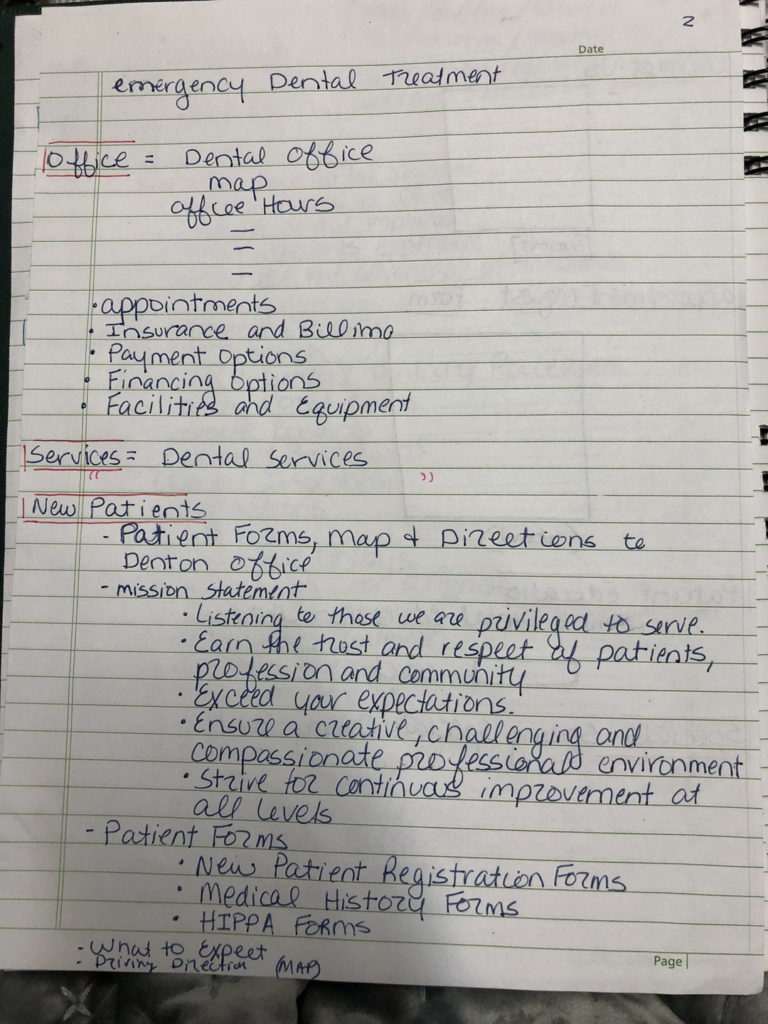 2
Date
emergency Dental Treatment
Office = Dental Office
map
offcee Hours
• appointments
• Insurance and Billing
• Payment Options
• Financing Options
• Facilities and Equipment
Services = Dental Services
“ ”
New Patients
- Patient Forms, map & Directions to
Denton Office
- mission statement
• Listening to those we are privileged to serve.
• Earn the trost and respect of patients,
profession and community
• Exceed your expectations.
• Ensure a creative, challenging and
compassionate professional environment
• Strive for continuous improvement at
all levels
- Patient Forms
• New Patient Registration Forms
• Medical History Forms
• HIPPA Forms
- What to Expect
- Driving Direction (MAP)
Page